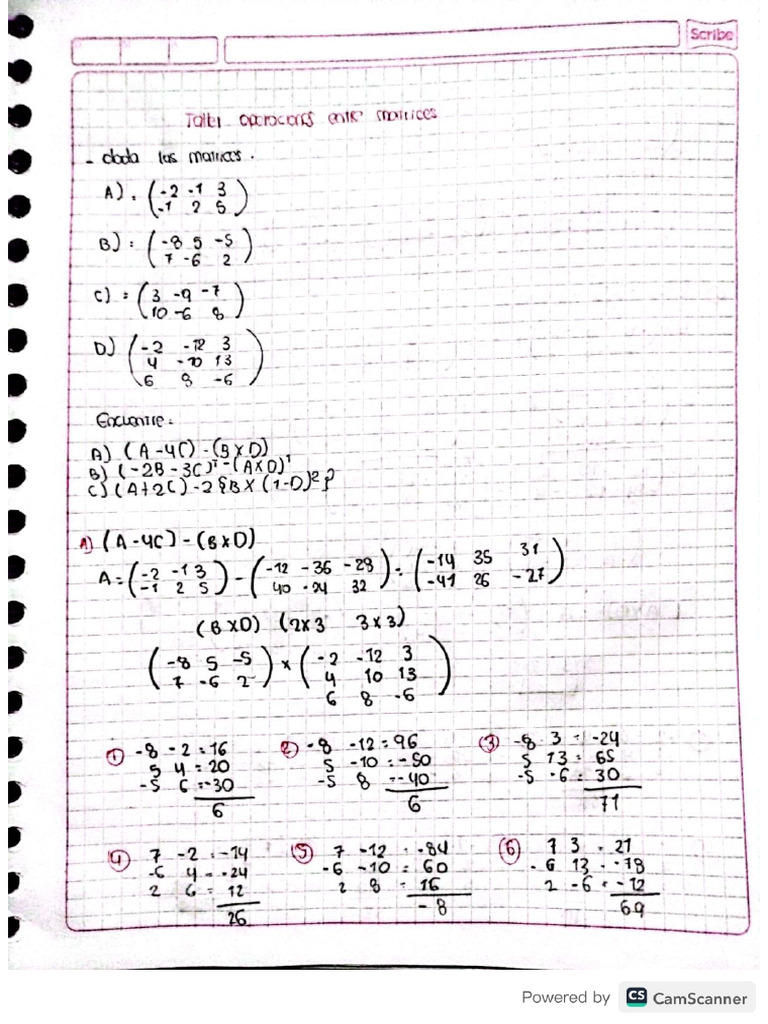 Scribe
Taller operaciones entre matrices
- dada las matrices.
A) = (-2 -1 3
-1 2 5)
B) = (-8 5 -5
7 -6 2)
C) = (3 -9 -7
10 -6 8)
D) (-2 -12 3
4 -10 13
6 8 -6)
Encuentre:
A) (A-4C) - (B×D)
B) (-2B-3C)ᵀ - (A×D)ᵀ
C) (A+2C) - 2{B×(1-D)²}
A) (A-4C) - (B×D)
A = (-2 -1 3 -1 2 5) - (-12 -36 -28 40 -24 32) = (-14 35 31 -41 26 -27)
(B×D) (2×3 3×3)
(-8 5 -5 7 -6 2) × (-2 -12 3 4 10 13 6 8 -6)
① -8 -2 = 16 ② -8 -12 = 96 ③ -8 3 = -24
5 4 = 20 5 -10 = -50 5 13 = 65
-5 6 = -30 -5 8 = -40 -5 -6 = 30
6 6 71
④ 7 -2 = -14 ⑤ 7 -12 = -84 ⑥ 7 3 = 21
-6 4 = -24 -6 -10 = 60 -6 13 = -78
2 6 = 12 2 8 = 16 2 -6 = -12
26 -8 69
Powered by CS CamScanner